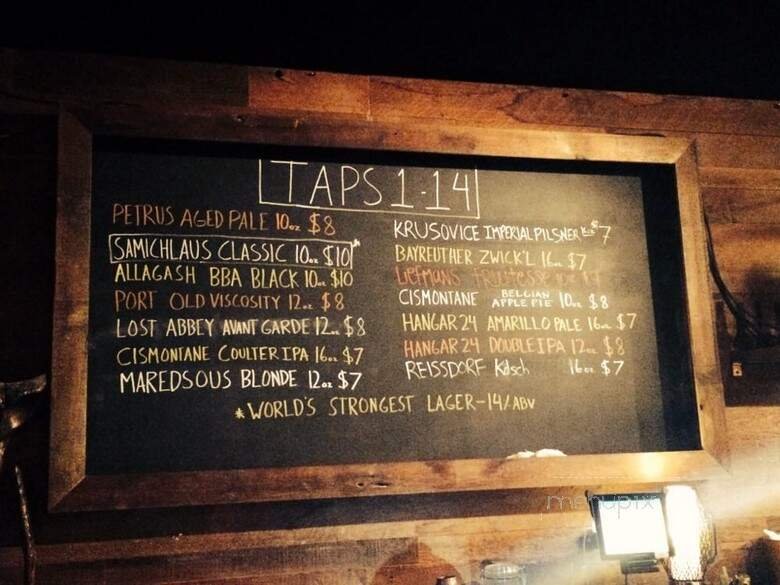 TAPS 1-14
PETRUS AGED PALE 10oz $8
SAMICHLAUS CLASSIC 10oz $10*
ALLAGASH BBA BLACK 10oz $10
PORT OLD VISCOSITY 12oz $8
LOST ABBEY AVANT GARDE 12oz $8
CISMONTANE COULTER IPA 16oz $7
MAREDSOUS BLONDE 12oz $7
KRUSOVICE IMPERIAL PILSNER 16oz $7
BAYREUTHER ZWICK'L 16oz $7
LIEFMANS FRUITESSE
CISMONTANE BELGIAN APPLE PIE 10oz $8
HANGAR 24 AMARILLO PALE 16oz $7
HANGAR 24 DOUBLE IPA 12oz $8
REISSDORF Kölsch 16oz $7
*WORLD'S STRONGEST LAGER-14% ABV
menupix